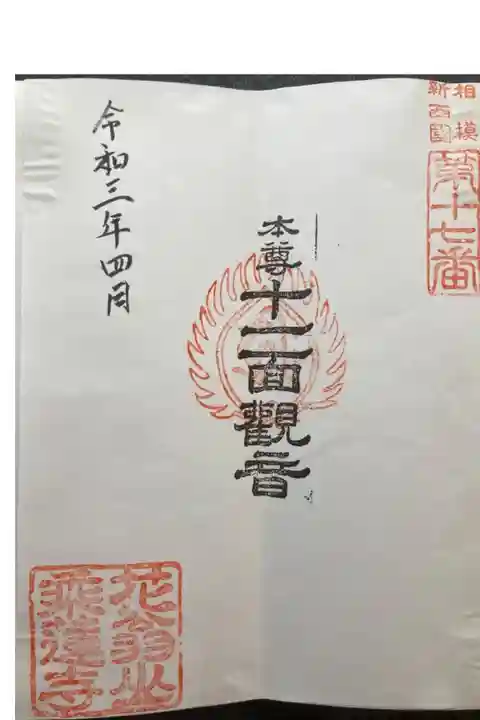 相模
新西國
第十七番
本尊十一面觀音
令和三年四月
花翁山
乘蓮寺